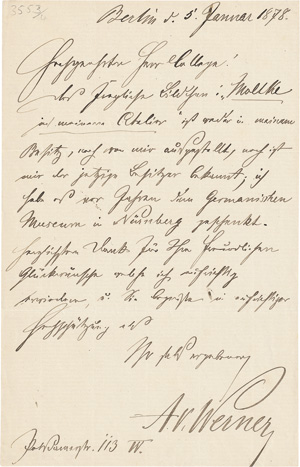 3553
Berlin d. 5 Januar 1878.
Hochgeehrter Herr College!
Das fragliche Bildchen: „Moltke
in meinem Atelier“ ist weder in meinem
Besitz, noch von mir ausgestellt, noch ist
mir der jetzige Besitzer bekannt; ich
habe es vor Jahren dem Germanischen
Museum in Nürnberg geschenkt.
Herzlichsten Dank für Ihre freundlichen
Glückwünsche welche ich aufrichtig
erwiedere, u. Sie in aufrichtiger
Hochschätzung als
Ihr sehr ergebener
A v. Werner
Potsdamerstr. 113 W.